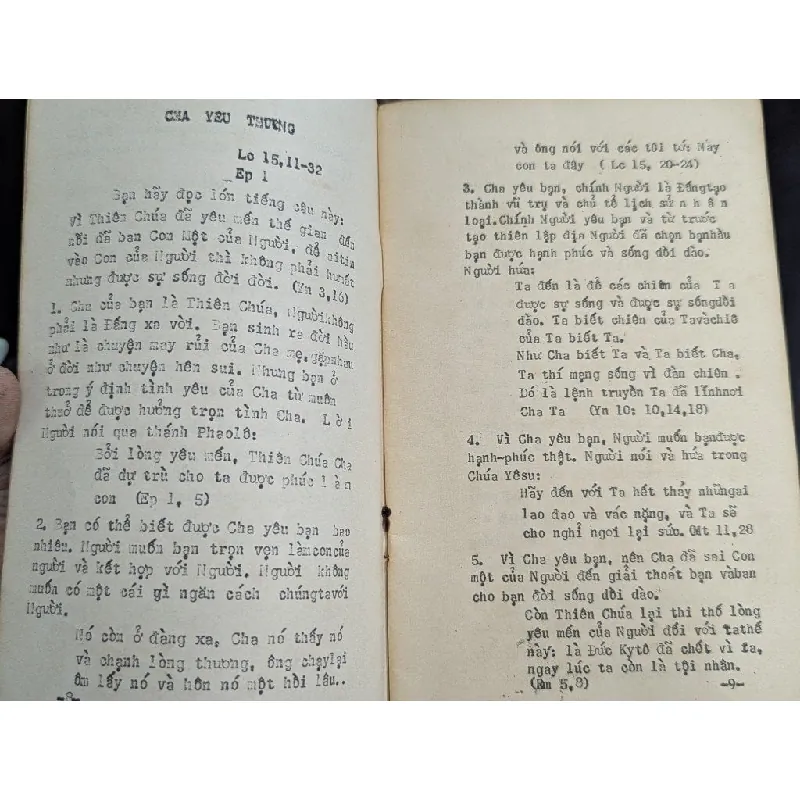 CHA YÊU THƯƠNG
Lc 15,11-32
Ep 1
Bạn hãy đọc lớn tiếng câu này:
vì Thiên Chúa đã yêu mến thế gian đến
nỗi đã ban Con Một của Người, để aitin
vào Con của Người thì không phải hư mất
nhưng được sự sống đời đời. (Yn 3,16)
1. Cha của bạn là Thiên Chúa, Ngườikhông
phải là Đấng xa vời. Bạn sinh ra đời hầu
như là chuyện may rủi của Cha mẹ,gặpnhau
ở đời như chuyện hên sui. Nhưng bạn ở
trong ý định tình yêu của Cha từ muôn
thuở để được hưởng trọn tình Cha. Lời
Người nói qua thánh Phaolô:
Bởi lòng yêu mến, Thiên Chúa Cha
đã dự trù cho ta được phúc làm
con (Ep 1, 5)
2. Bạn có thể biết được Cha yêu bạn bao
nhiêu. Người muốn bạn trọn vẹn làmconcủa
người và kết hợp với Người. Người không
muốn có một cái gì ngăn cách chúngtavới
Người.
Nó còn ở đàng xa, Cha nó thấy nó
và chạnh lòng thương, ông chạylại
ôm lấy nó và hôn nó một hồi lâu..
-8-
và ông nói với các tôi tớ: Này
con ta đây ( Lc 15, 20-24)
3. Cha yêu bạn, chính Người là Đấngtạo
thành vũ trụ và chủ tể lịch sử nhân
loại.Chính Người yêu bạn và từ trước
tạo thiên lập địa Người đã chọn bạnhầu
bạn được hạnh phúc và sống dồi dào.
Người hứa:
Ta đến là để các chiên của Ta
được sự sống và được sự sốngdồi
dào. Ta biết chiên của Tavàchiê
của Ta biết Ta.
Như Cha biết Ta và Ta biết Cha,
Ta thí mạng sống vì đàn chiên .
Đó là lệnh truyền Ta đã lĩnhnơi
Cha Ta (Yn 10: 10,14,18)
4. Vì Cha yêu bạn, Người muốn bạnđược
hạnh-phúc thật. Người nói và hứa trong
Chúa Yêsu:
Hãy đến với Ta hết thảy nhữngai
lao đao và vác nặng, và Ta sẽ
cho nghỉ ngơi lại sức. (Mt 11,28
5. Vì Cha yêu bạn, nên Cha đã sai Con
một của Người đến giải thoát bạn vàban
cho bạn đời sống dồi dào.
Còn Thiên Chúa lại thi thố lòng
yêu mến của Người đối với tathế
này: là Đức Kytô đã chết vì ta,
ngay lúc ta còn là tội nhân.
(Rm 5,8)
-9-